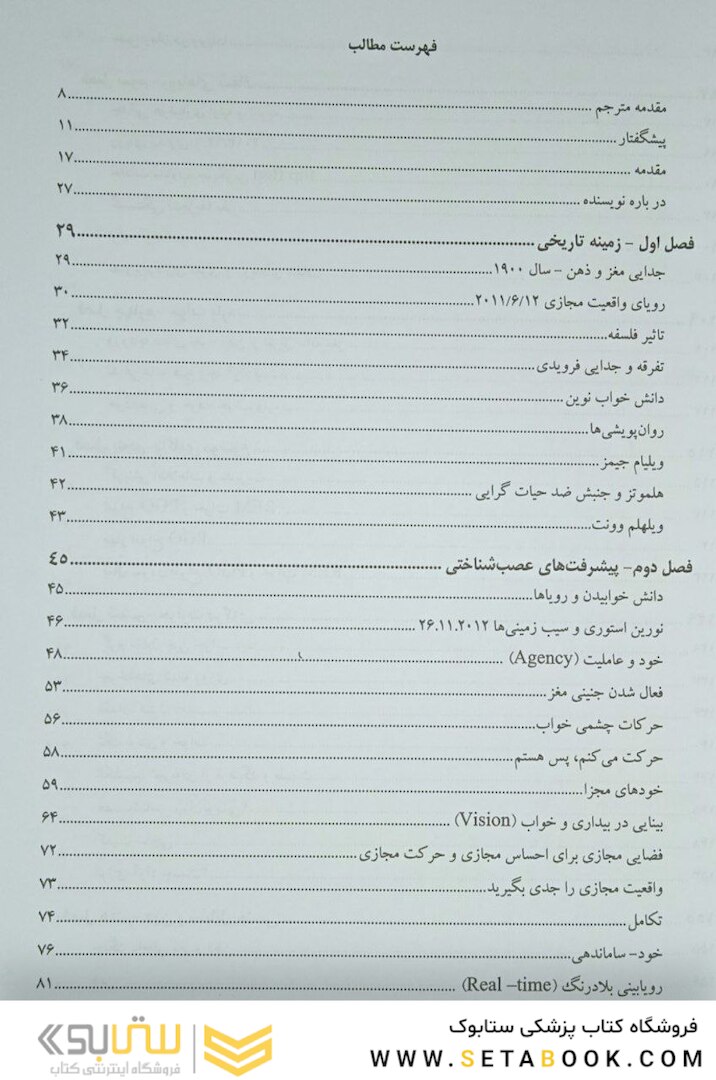 فهرست مطالب
مقدمه مترجم ........ ۸
پیشگفتار ........ ۱۱
مقدمه ........ ۱۷
در باره نویسنده ........ ۲۷
فصل اول - زمینه تاریخی ........ ۲۹
جدایی مغز و ذهن - سال ۱۹۰۰ ........ ۲۹
رویای واقعیت مجازی ۲۰۱۱/۶/۱۲ ........ ۳۰
تاثیر فلسفه ........ ۳۲
تفرقه و جدایی فرویدی ........ ۳۴
دانش خواب نوین ........ ۳۶
روان‌پویشی‌ها ........ ۳۸
ویلیام جیمز ........ ۴۱
هلموتز و جنبش ضد حیات گرایی ........ ۴۲
ویلهلم وونت ........ ۴۳
فصل دوم- پیشرفت‌های عصب‌شناختی ........ ٤٥
دانش خوابیدن و رویاها ........ ۴۵
نورین استوری و سیب زمینی‌ها ۲۶.۱۱.۲۰۱۲ ........ ۴۶
خود و عاملیت (Agency) ........ ۴۸
فعال شدن جنینی مغز ........ ۵۳
حرکات چشمی خواب ........ ۵۶
حرکت می‌کنم، پس هستم ........ ۵۸
خودهای مجزا ........ ۵۹
بینایی در بیداری و خواب (Vision) ........ ۶۴
فضایی مجازی برای احساس مجازی و حرکت مجازی ........ ۷۲
واقعیت مجازی را جدی بگیرید ........ ۷۳
تکامل ........ ۷۴
خود- ساماندهی ........ ۷۶
رویابینی بلادرنگ (Real –time) ........ ۸۱
فروشگاه کتاب پزشکی ستابوک
WWW.SETABOOK.COM
ستابوک
فروشگاه اینترنتی کتاب